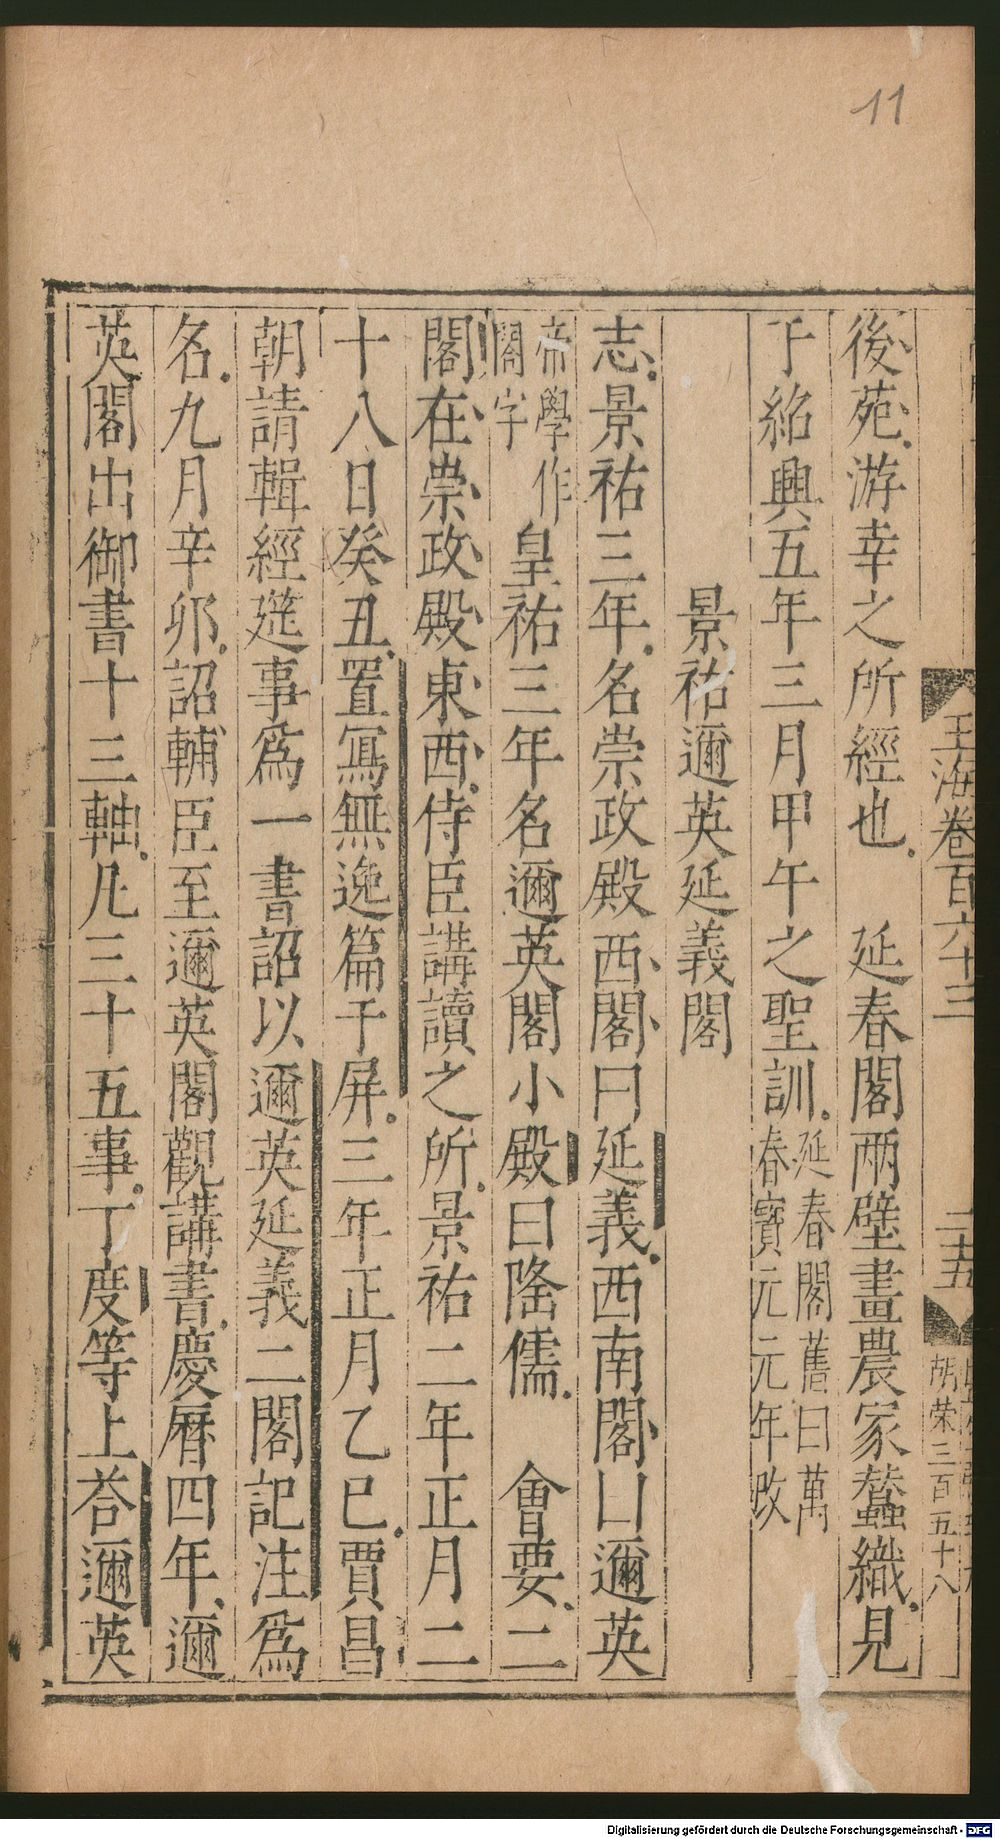 11
玉海卷百六十三
二十五
胡荣三百五十八
後苑游幸之所經也　延春閣兩壁畫農家蠶織見
于紹興五年三月甲午之聖訓延春閣舊曰萬春寶元元年改
景祐邇英延義閣
志景祐三年名崇政殿西閣曰延義西南閣曰邇英
帝學作閣字皇祐三年名邇英閣小殿曰隆儒　會要二
閣在崇政殿東西侍臣講讀之所景祐二年正月二
十八日癸丑置寫無逸篇于屏三年正月乙巳賈昌
朝請輯經筵事爲一書詔以邇英延義二閣記注爲
名九月辛卯詔輔臣至邇英閣觀講書慶曆四年邇
英閣出御書十三軸凡三十五事丁度等上荅邇英
Digitalisierung gefördert durch die Deutsche Forschungsgemeinschaft - DFG